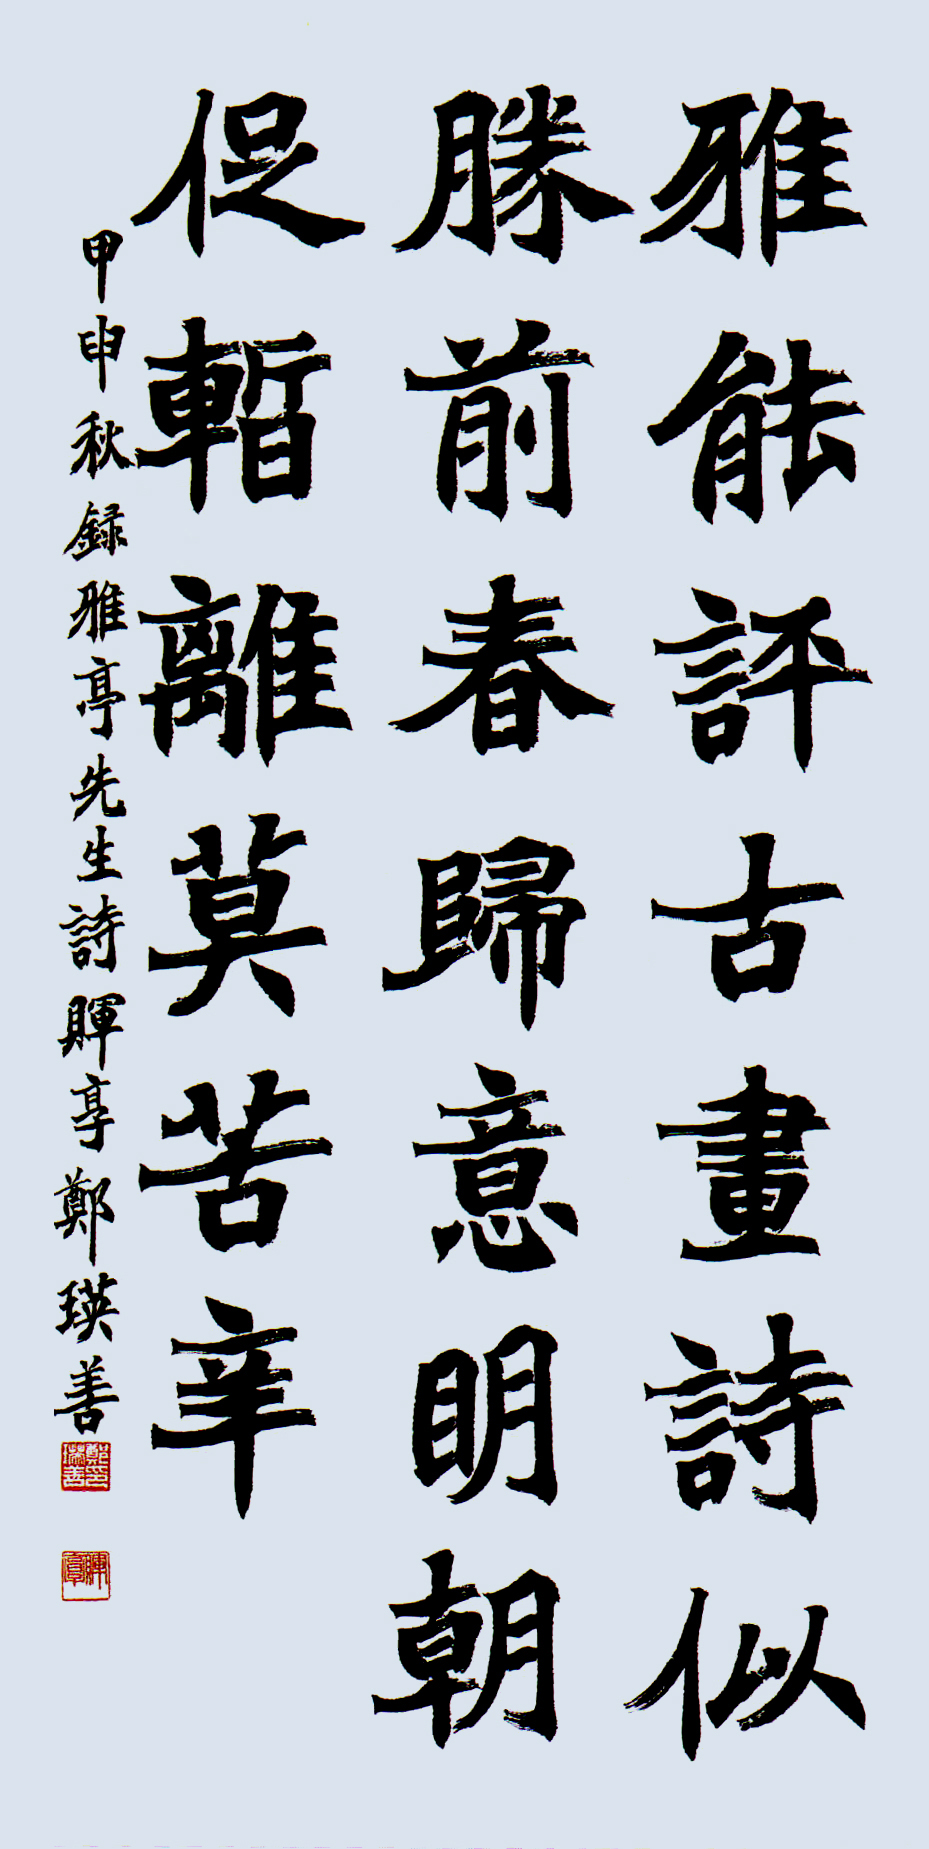 雅能評古畫詩似
勝前春歸意明朝
促暫離莫苦辛
甲申秋録雅亭先生詩暉亭鄭瑛善